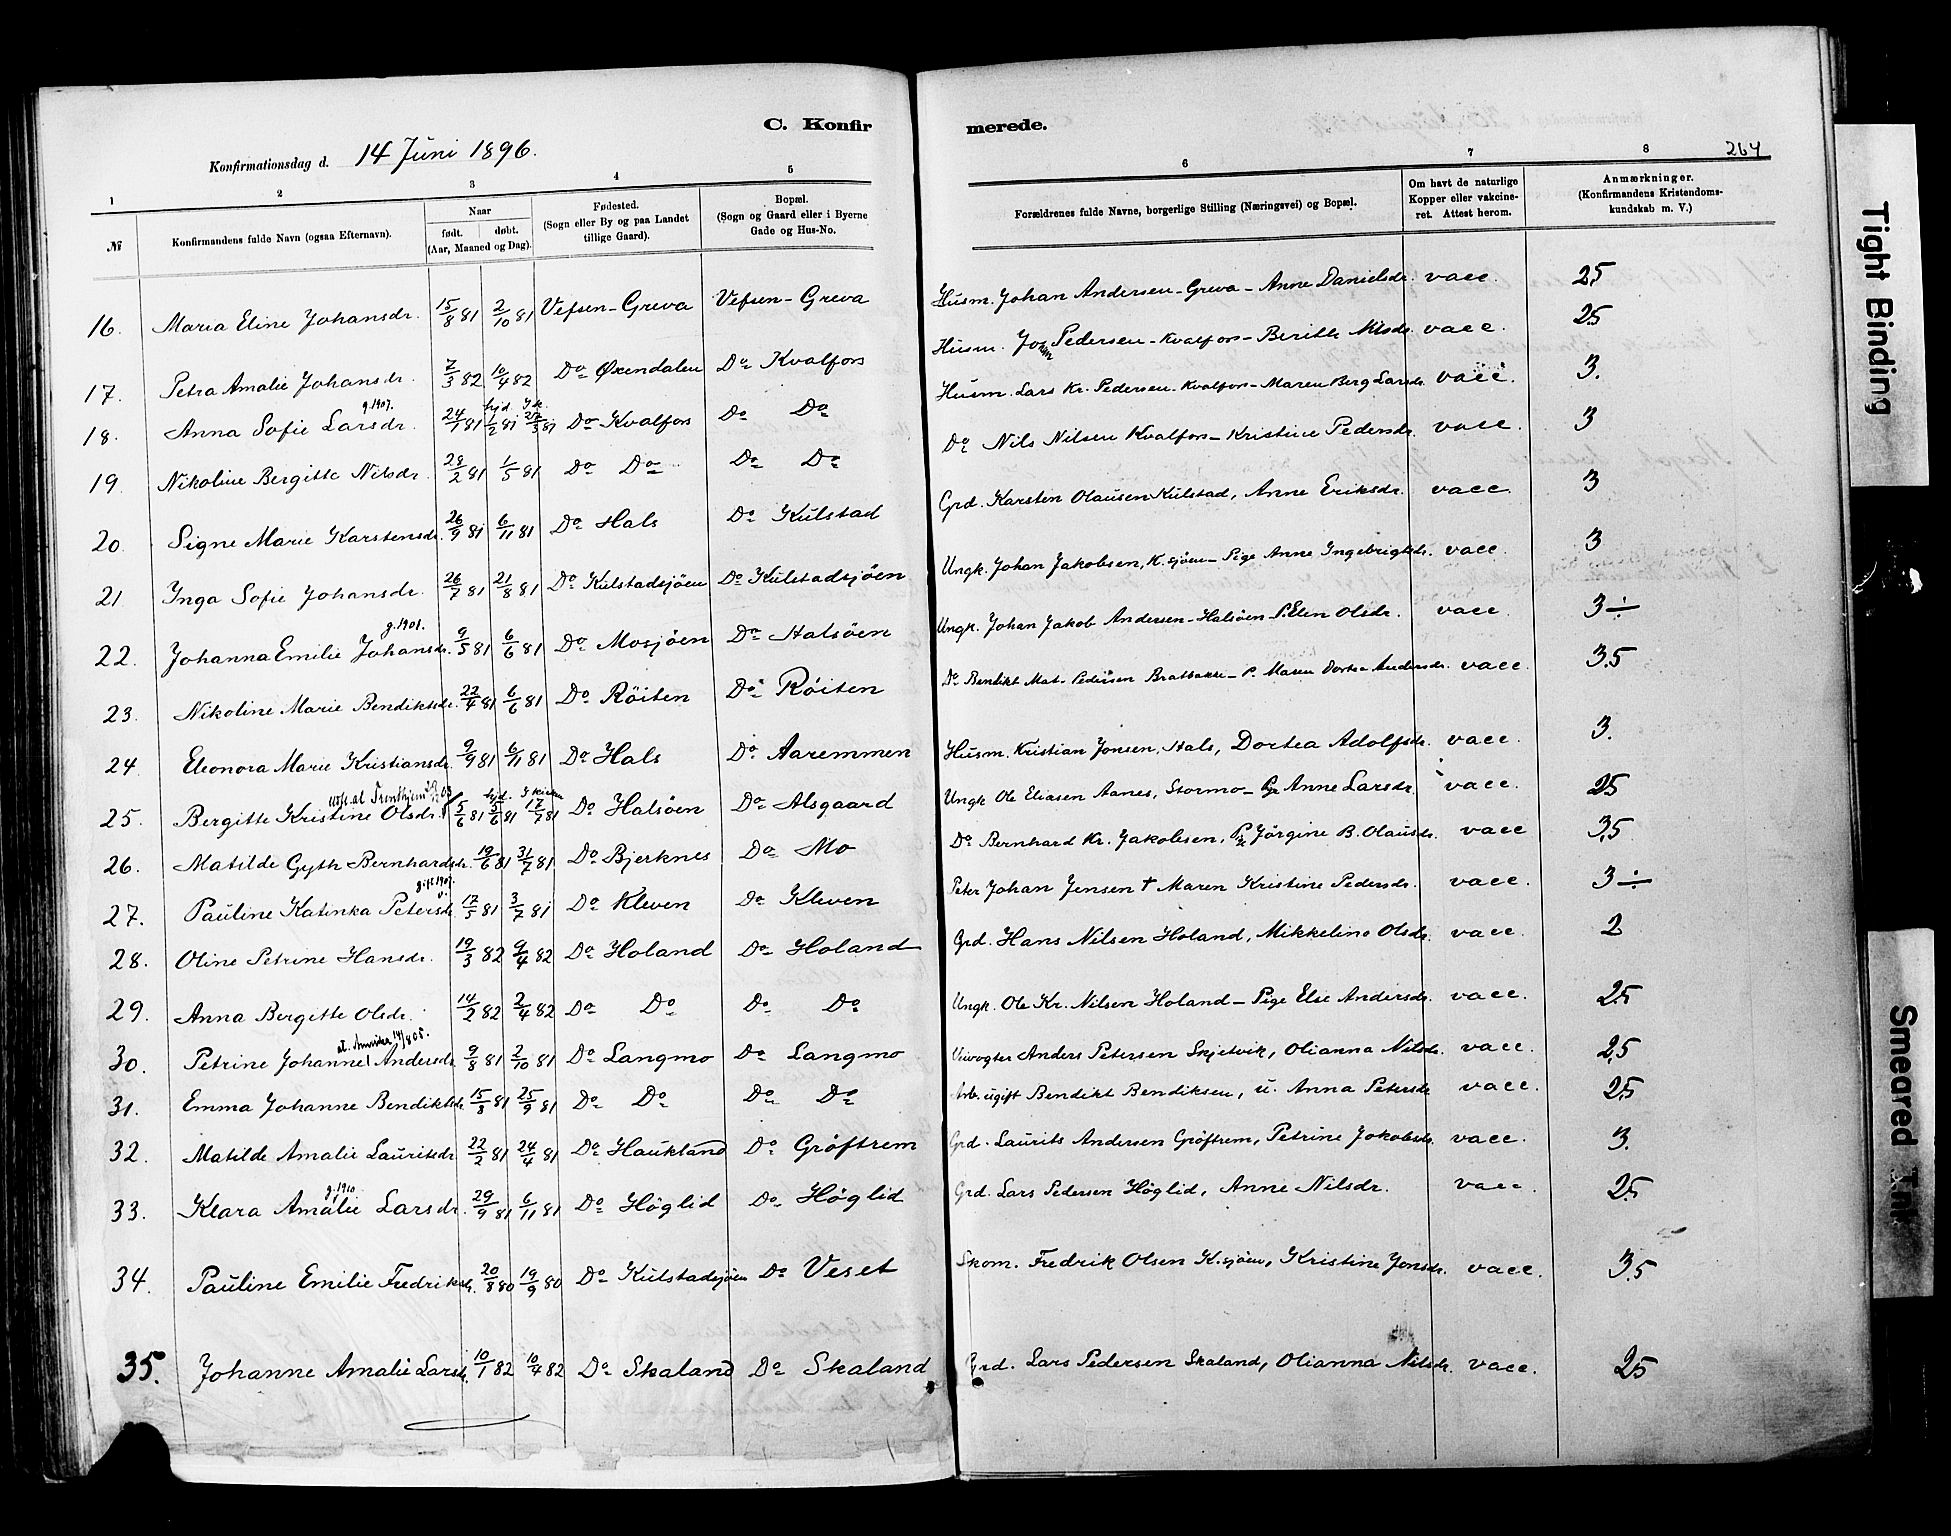 C. Konfir merede.
Konfirmationsdag d. 14 Juni 1896.
264
1 2 3 4 5 6 7 8
№ Konfirmandens fulde Navn (ogsaa Efternavn). Naar født. døbt. (Aar, Maaned og Dag). Fødested. (Sogn eller By og paa Landet tillige Gaard). Bopæl. (Sogn og Gaard eller i Byerne Gade og Hus-No. Forældrenes fulde Navne, borgerlige Stilling (Næringsvei) og Bopæl. Om havt de naturlige Kopper eller vakcineret. Attest herom. Anmærkninger. (Konfirmandens Kristendomskundskab m. V.)
16. Maria Eline Johansdr. 15/8 81 2/10 81 Vefsen-Greva Vefsen-Greva Husm. Johan Andersen-Greva-Anne Danielsdr. vacc. 2,5
17. Petra Amalie Johansdr. 7/3 82 10/4 82 Do Øxendalen Do Kvalfors Husm. Johan Pedersen-Kvalfors-Berith Nilsdr. vacc. 2,5
g. 1907. hjd. I k.
18. Anna Sofie Larsdr. 24/1 81 1/2 81 27/3 81 Do Kvalfors Do Do Husm. Lars Kr. Pedersen Kvalfors-Maren Berg Larsdr. vacc. 3.
19. Nikoline Bergitte Nilsdr. 28/2 81 1/5 81 Do Do Do Do Do Nils Nilsen Kvalfors-Kristine Pedersdr. vacc. 3
20. Signe Marie Karstensdr. 26/9 81 6/11 81 Do Hals Do Kulstad Grd. Karsten Olausen Kulstad, Anne Eriksdr. vacc. 3
21. Inga Sofie Johansdr. 26/7 81 21/8 81 Do Kulstadsjöen Do Kulstadsjöen Ungk. Johan Jakobsen, K.sjöen-Pige Anne Ingebrigtsdr. vacc. 3
g. 1901.
22. Johanna Emilie Johansdr. 9/5 81 6/6 81 Do Mosjöen Do Halsöen Ungk. Johan Jakob Andersen-Halsöen-P. Elen Olsdr. vacc. 3÷
23. Nikoline Marie Bendiktsdr. 22/4 81 6/6 81 Do Röiten Do Röiten Do Bendikt Mat. Pedersen - P. Maren Dortea Andersdr. vacc. 3,5
24. Eleonora Marie Kristiansdr. 9/9 81 6/11 81 Do Hals Do Aaremmen Husm. Kristian Jonsen, Hals, Dortea Adolfsdr. vacc. 3.
hjd. I kirken
25. Bergitte Kristine Olsdr. 5/6 81 5/6 81 17/7 81 Do Halsöen Do Alsgaard Ungk. Ole Eliasen Aanes, Stormo-Pg. Anne Larsdr. vacc. 2,5
26. Matilde Gyth Bernhardsdr. 19/6 81 31/7 81 Do Bjerknes Do Mo Do Bernhard Kr. Jakobsen, Pg. Jörgine B. Olausdr. vacc 3,5
gift 1907.
27. Pauline Katinka Petersdr. 17/5 81 3/7 81 Do Kleven Do Kleven Peter Johan Jensen † Maren Kristine Pedersdr. vacc. 3÷
28. Oline Petrine Hansdr. 19/3 82 9/4 82 Do Holand Do Holand Grd. Hans Nilsen Holand, Mikkeline Olsdr. vacc. 2
29. Anna Bergitte Olsdr. 14/2 82 2/4 82 Do Do Do Do Ungk. Ole Kr. Nilsen Holand-Pige Else Andersdr. vacc. 2,5
at. Amerika 14/8 05.
30. Petrine Johanne Andersdr 9/8 81 2/10 81 Do Langmo Do Langmo Anders Petersen Skjetvik, Olianna Nilsdr. vacc. 2,5
31. Emma Johanne Bendiktsdr. 15/8 81 25/9 81 Do Do Do Do Arb. ugift Bendikt Bendiksen, u. Anna Petersdr vacc. 2,5
32. Matilde Amalie Lauritsdr 22/2 81 24/4 81 Do Haukland Do Gröftrem Grd. Laurits Andersen Gröftrem, Petrine Jakobsdr. vacc. 3.
g. 1910
33. Klara Amalie Larsdr. 29/9 81 6/11 81 Do Höglid Do Höglid Grd. Lars Pedersen Höglid, Anne Nilsdr. vacc. 2,5
34. Pauline Emilie Fredriksdr. 20/8 80 19/9 80 Do Kulstadsjöen Do Veset Skom. Fredrik Olsen K.sjöen, Kristine Jonsdr. vacc. 3,5
35. Johanne Amalie Larsdr. 10/1 82 10/4 82 Do Skaland Do Skaland Grd. Lars Pedersen Skaland, Olianna Nilsdr. vacc. 2,5
Tight Binding
Smeared Ink